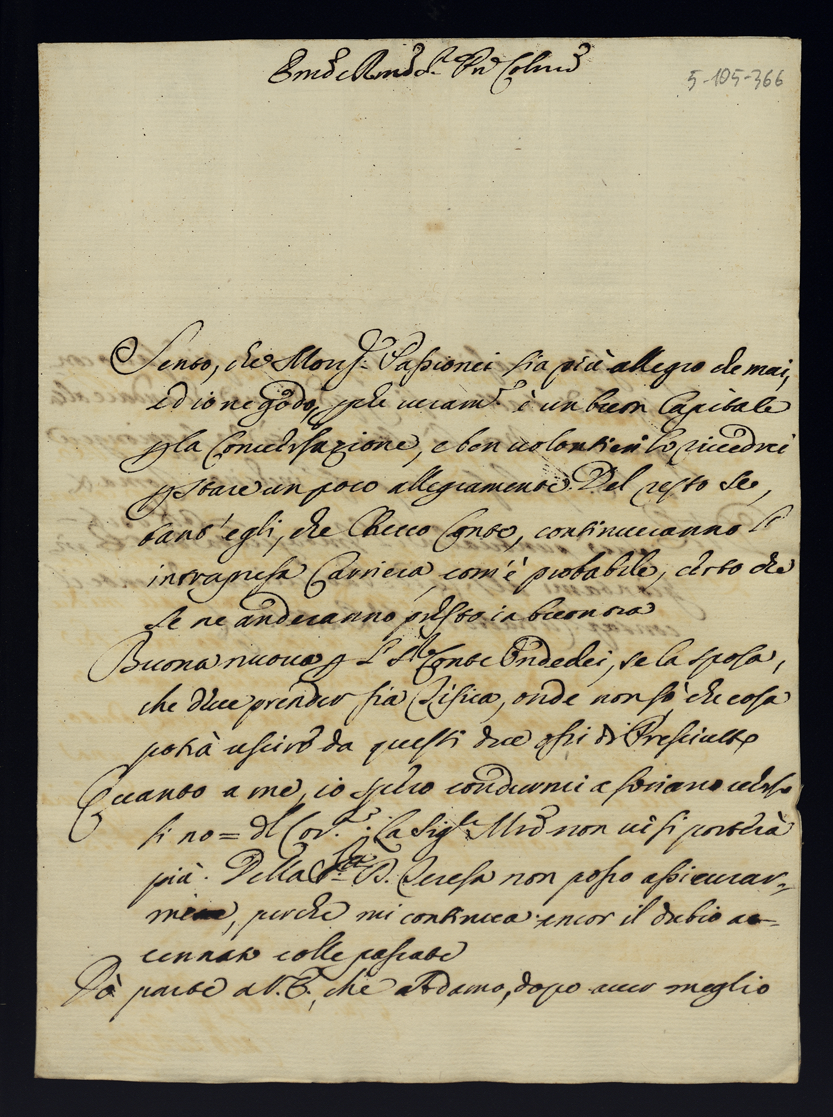 Em̃o e Rm̃o Sig.r Pñ Colm̃o
5-105-366
Sento, che Mons.r Passionei sia più allegro che mai,
ed io ne godo, pche veram.te è un buon Capitale
p la Conversazione, e ben volontieri lo rivedrei
p stare un poco allegramente. Del resto se,
tant'egli, che Checco Conte, continueranno l'
intrapresa Carriera, com'è probabile, certo che
se ne anderanno presto in buon ora
Buona nuova p l S.r Conte Ondedei, se la sposa,
che deve prender sia Tisica, onde non sò che cosa
potrà uscire da questi due ossi di Presciutto
Quanto a me, io spero condurmi a Soriano verso
li 10 = dl Cor.te: La Sig.ra Mrẽ non vi si porterà
più. Della S.ra D. Teresa non posso assicurar-
mene, perche mi continua ancor il dubio ac-
cennato colle passate
Dò parte a V. E., che Adamo, dopo aver meglio